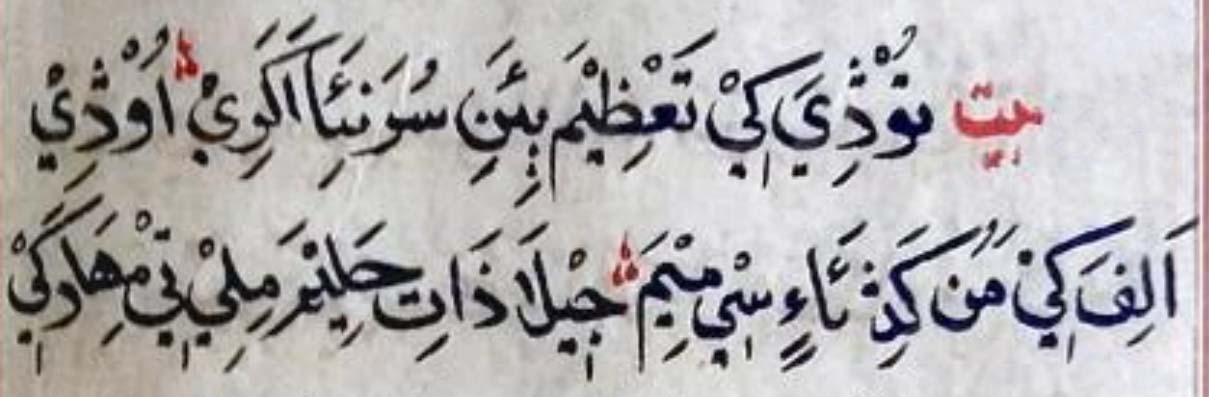 بيت تُوْڏِيَ کِيْ تَعْظِيْمَ ٻِئَنِ سُوَ نِئَا اَکَوِيْ اُوْڏِيْ
اَلِفَ کِيْ مَن کَڏِ ئَاءٍ سِيْ مِيْمَ جِيْلَا ذَاتِ حَلِيْمَ مِلِيْ تِيْ مِهَارَکِيْ